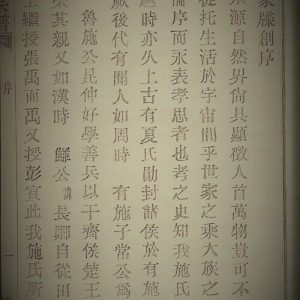 家牒創序
水源自然界尚具顯徵人首萬物豈可不
從托生活於宇宙間乎世家之乘大族之
備序而永表孝思者也考之史知我施氏
越時亦久上古有夏氏勛封諸侯於有施
厥後代有聞人如周時 有施子常公為
魯施公昆仲好學善兵以干齊侯楚王
榮其親又如漢時 讎公諱長卿自從田
王繼授張禹而禹又授彭宣此我施氏所
序
一